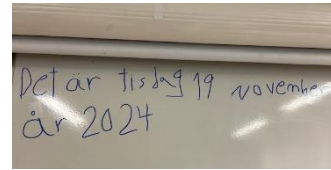 Det är tisdag 19 november
år 2024